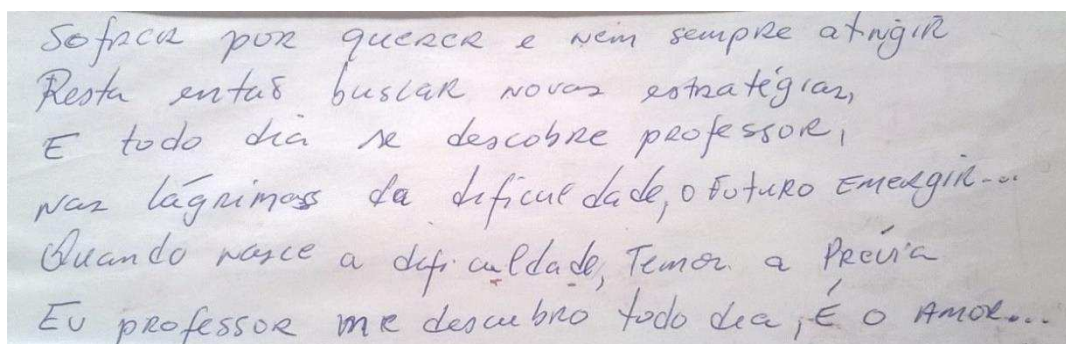 Sofrer por querer e nem sempre atingir
Resta então buscar novas estratégias,
E todo dia se descobre professor,
nas lágrimas da dificuldade, o futuro Emergir...
Quando nasce a dificuldade, Temor a Prévia
Eu professor me descubro todo dia, É o Amor...